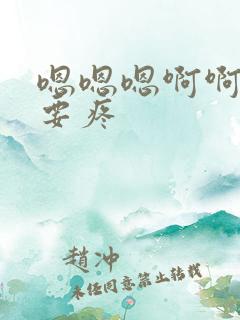 嗯嗯嗯啊啊
要疼
趙冲
未经同意禁止转载